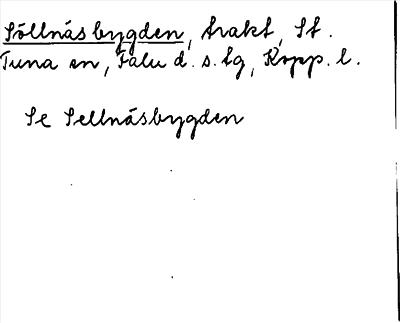 Söllnäsbygden, trakt, St.
Tuna sn, Falu d. s. tg, Kopp. l.
Se Sellnäsbygden